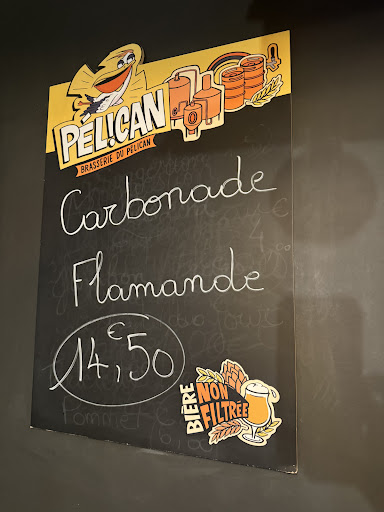 PÉL!CAN
BRASSERIE DU PÉLICAN
Carbonade
Flamande
14,€50
BIÈRE
NON
FILTRÉE